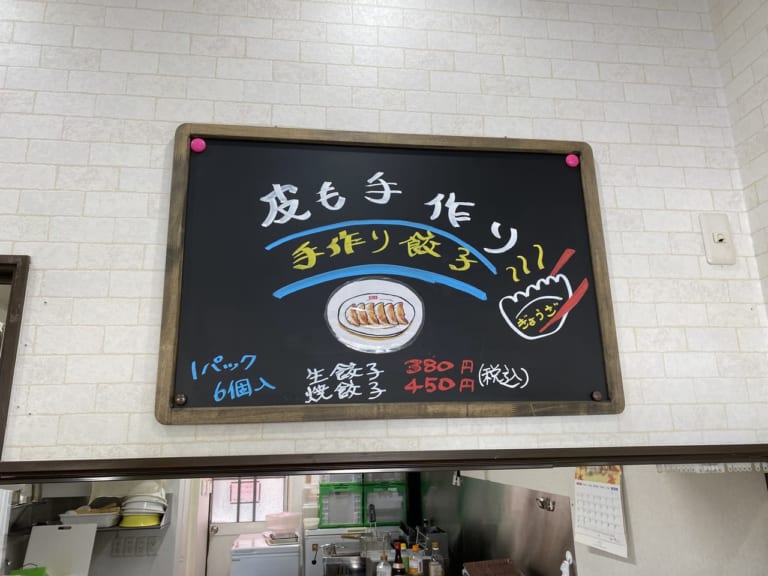 皮も手作り
手作り餃子
ぎょうざ
1パック
6個入
生餃子 380円
焼餃子 450円
(税込)